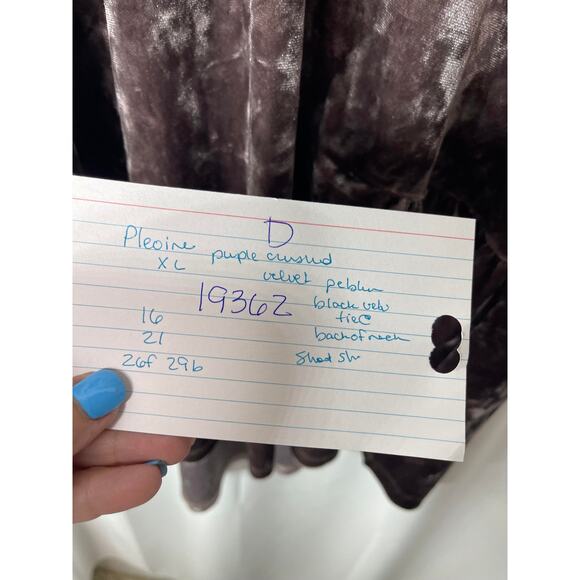 D
Pleoine purple crushed
XL velvet peblum
19362 black velv
16 tie @
21 back of neck
26f 29b Shod Slv